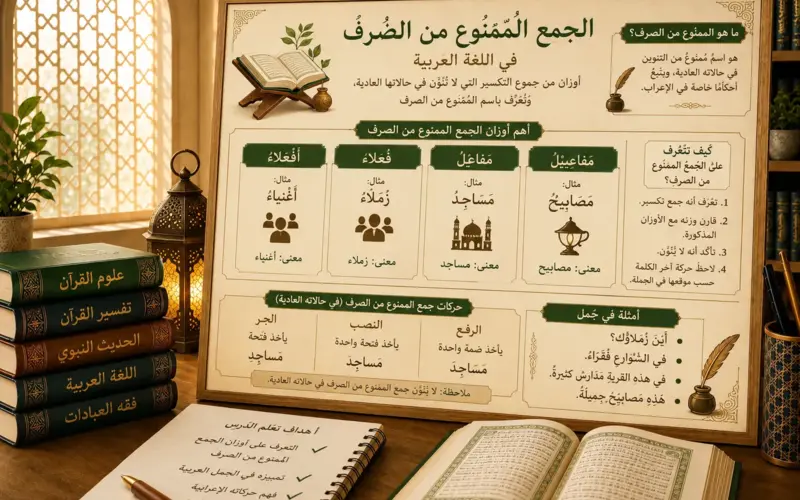 الجمع المُمَنُوع من الصُرفُ
في اللغة العربية
أوزان من جموع التكسير التي لا تُنُوَّن في حالاتها العادية،
وَتُعَرَّف باسم المُمَنوع من الصرف
ما هو الممنوع من الصرف؟
هو اسمُ مُمنوعُ من التنوين
في حالاته العادية، ويتبعُ
أحكامًا خاصة في الإعراب.
أهم أوزان الجمع الممنوع من الصرف
مَفاعِيْلُ
مثال:
مَصَابِيحُ
معنى: مصابيح
مَفاعِلُ
مثال:
مَسَاجِدُ
معنى: مساجد
فُعَلاءُ
مثال:
زُمَلَاءُ
معنى: زملاء
أَفْعَلاءُ
مثال:
أَغْنِياءُ
معنى: أغنياء
كَيف تتَعْرف
علىُ الجُمعُ الممنَوع
من الصرف؟
1. تعْرَف أنه جمع تكسير.
2. قارن وزنه مع الأوزان
المذكورة.
3. تأكد أنه لا يُنُوَّن.
4. لاحظْ حركة آخر الكلمة
حسب موقعها في الجملة.
حركات جمع الممنوع من الصرف (في حالاته العادية)
الرفع
يأخذ ضمة واحدة
مَسَاجِدُ
النصب
يأخذ فتحة واحدة
مَسَاجِدَ
الجر
يأخذ فتحة
مَسَاجِدِ
ملاحظة: لا يُنُوَّن جمع الممنوع من الصرف في حالاته العادية.
أمثلة في جُمل
أَيْنَ زُملاؤُك؟
في الشَّوارعِ فُقَرَاءُ.
في هذهِ القريةِ مَدَارسُ كثيرةُ.
هُذِهِ مَصابيْحُ جميلَةُ.
علوم القرآن
تفسير القرآن
الحديث النبوي
اللغة العربية
فقه العبادات
أهداف تعلم الدرس
التعرف على أوزان الجمع
الممنوع من الصرف
تمييزه في الجمل العربية
فهم حركاته الإعرابية